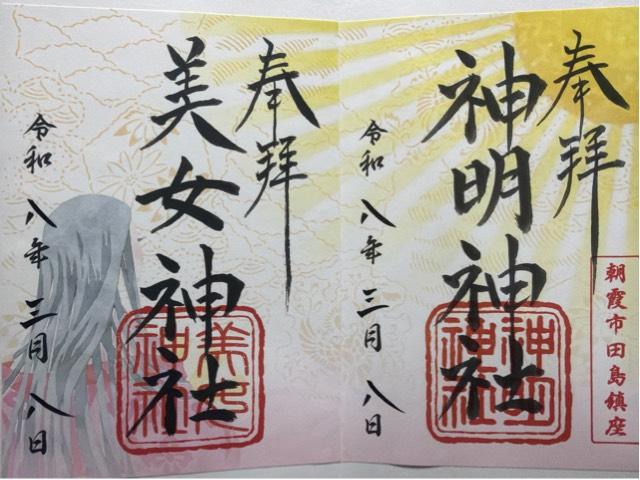 奉拝
神明神社
神明神社
令和八年三月八日
朝霞市田島鎮座
奉拝
美女神社
美女神社
令和八年三月八日